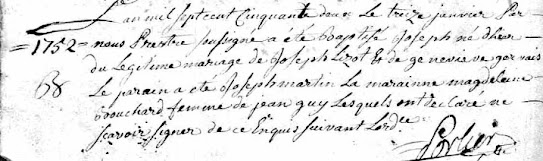 L'an mil sept cent Cinquante deux Le treize janvier Par
=1752= nous Prestre soussigné a été Baptisé Joseph né d'hier
du Legitime mariage de Joseph Lizot & de genevieve gervais
B Le parain a été Joseph martin La marainne magdelaine
bouchard femme de jean guy Lesquels ont declaré ne
scavoir signer de ce Enquis suivant Lordce